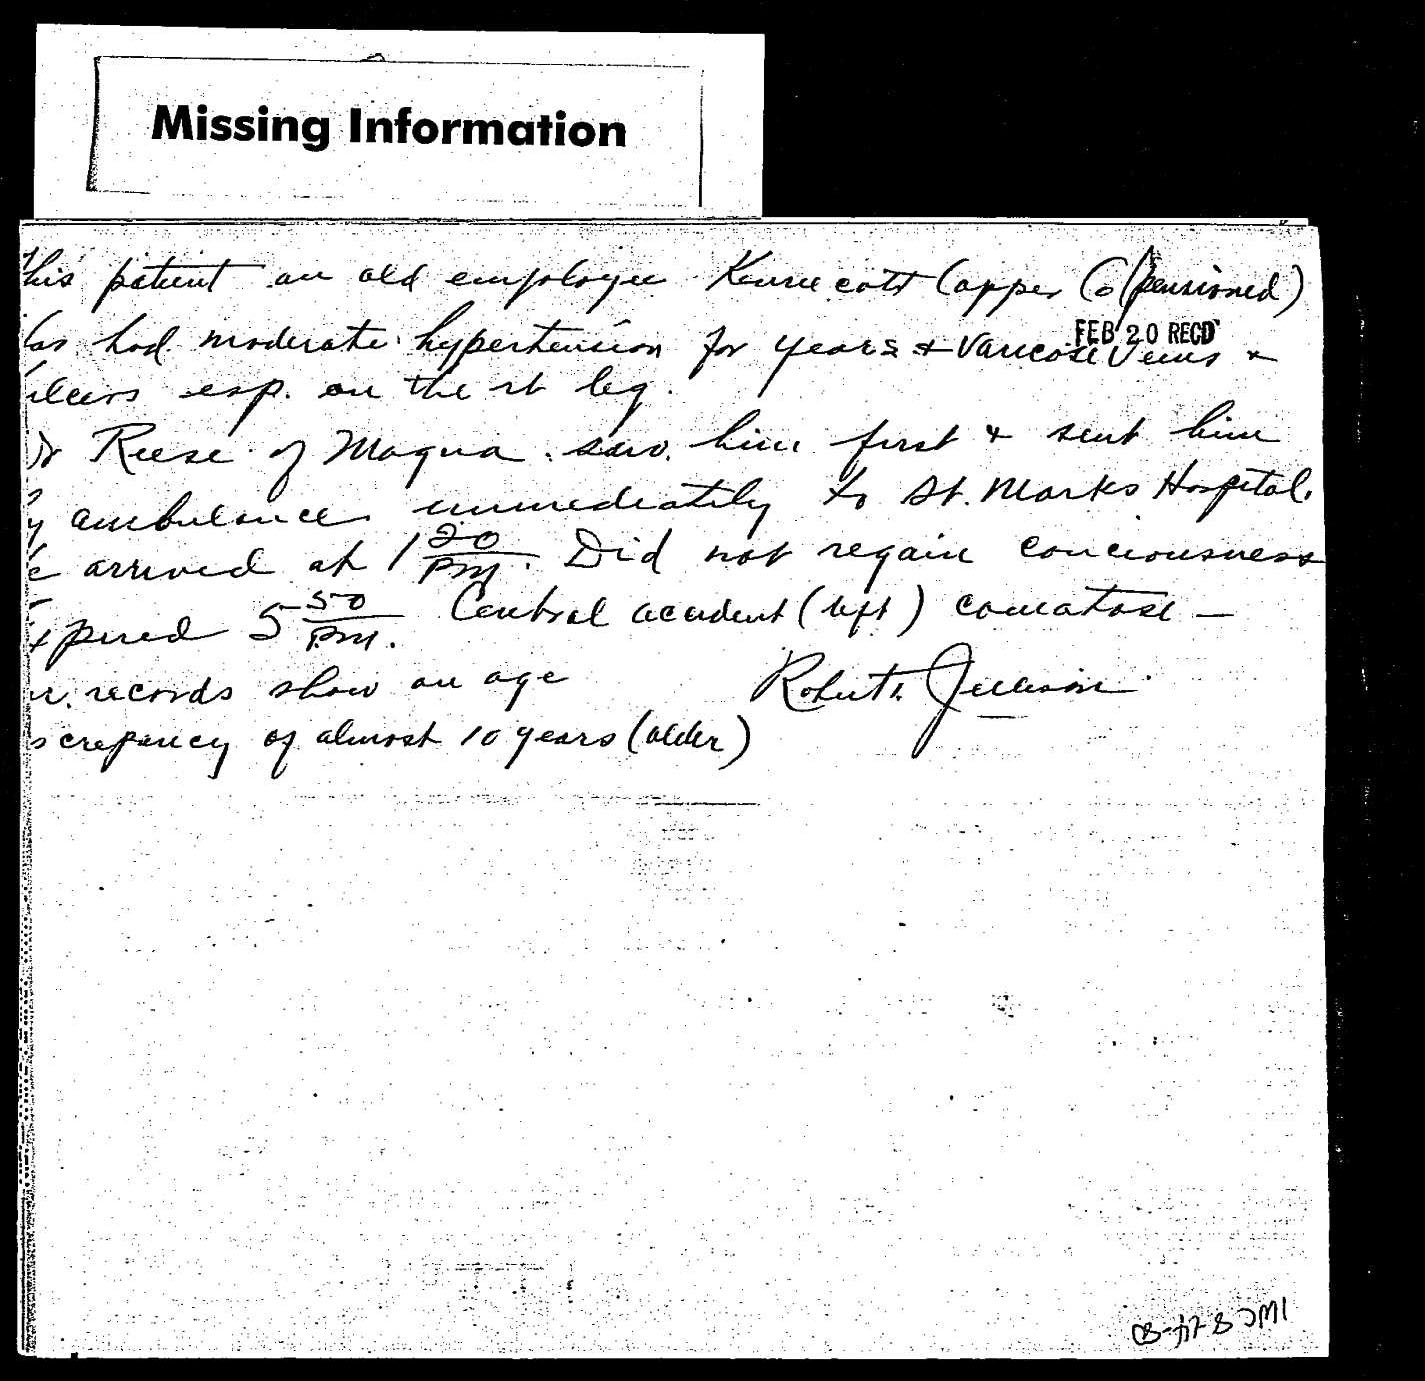 Missing Information
his patient an old employee Kennecott Copper Co (pensioned)
as had moderate hypertension for years & varicose veins &
FEB 20 RECD
ulcers esp. on the rt leg.
Dr Reese of Magna saw him first & sent him
y ambulance immediately to St. Marks Hospital.
e arrived at 1 20 PM. Did not regain conciousness
xpired 5 50 PM. Central accident (left) comatose –
ur records show an age
screpancy of almost 10 years (older)
Robert